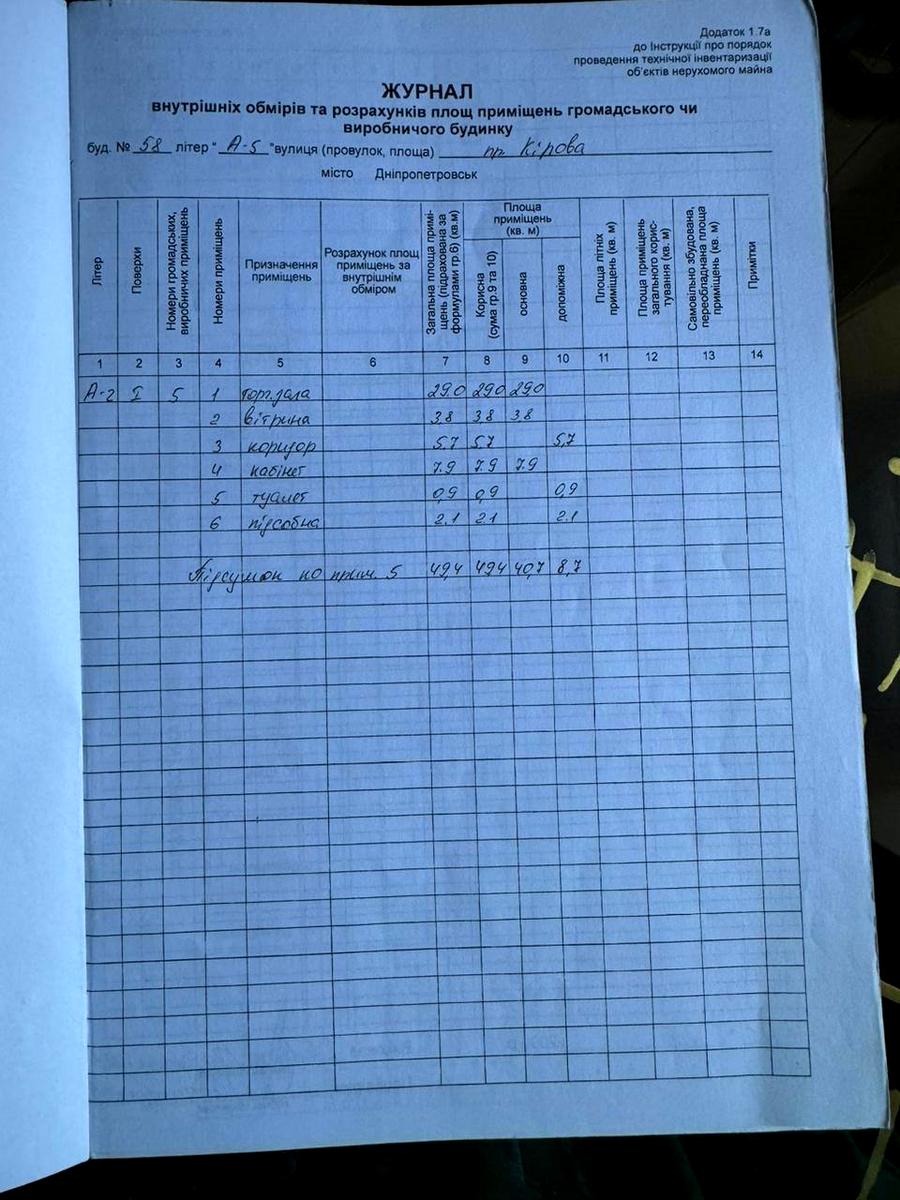 Додаток 1.7а
до Інструкції про порядок
проведення технічної інвентаризації
об'єктів нерухомого майна
ЖУРНАЛ
внутрішніх обмірів та розрахунків площ приміщень громадського чи
виробничого будинку
буд. № 58 літер "А-5" вулиця (провулок, площа) пр Кірова
місто Дніпропетровськ
Літер
Поверхи
Номери громадських, виробничих приміщень
Номери приміщень
Призначення приміщень
Розрахунок площ приміщень за внутрішнім обміром
Загальна площа примі-щень (підрахована за формулами гр.6) (кв.м)
Площа приміщень (кв. м)
Корисна (сума гр.9 та 10)
основна
допоміжна
Площа літніх приміщень (кв. м)
Площа приміщень загального корис-тування (кв. м)
Самовільно збудована, переобладнана площа приміщень (кв. м)
Примітки
1 2 3 4 5 6 7 8 9 10 11 12 13 14
А-2 I 5 1 торг.зала 29.0 29.0 29.0
2 вітрина 3.8 3.8 3.8
3 коридор 5.7 5.7 5,7
4 кабінет 7.9 7.9 7.9
5 туалет 0,9 0,9 0,9
6 підсобна 2.1 2.1 2.1
Підсумок по прим. 5 49,4 49,4 40,7 8,7